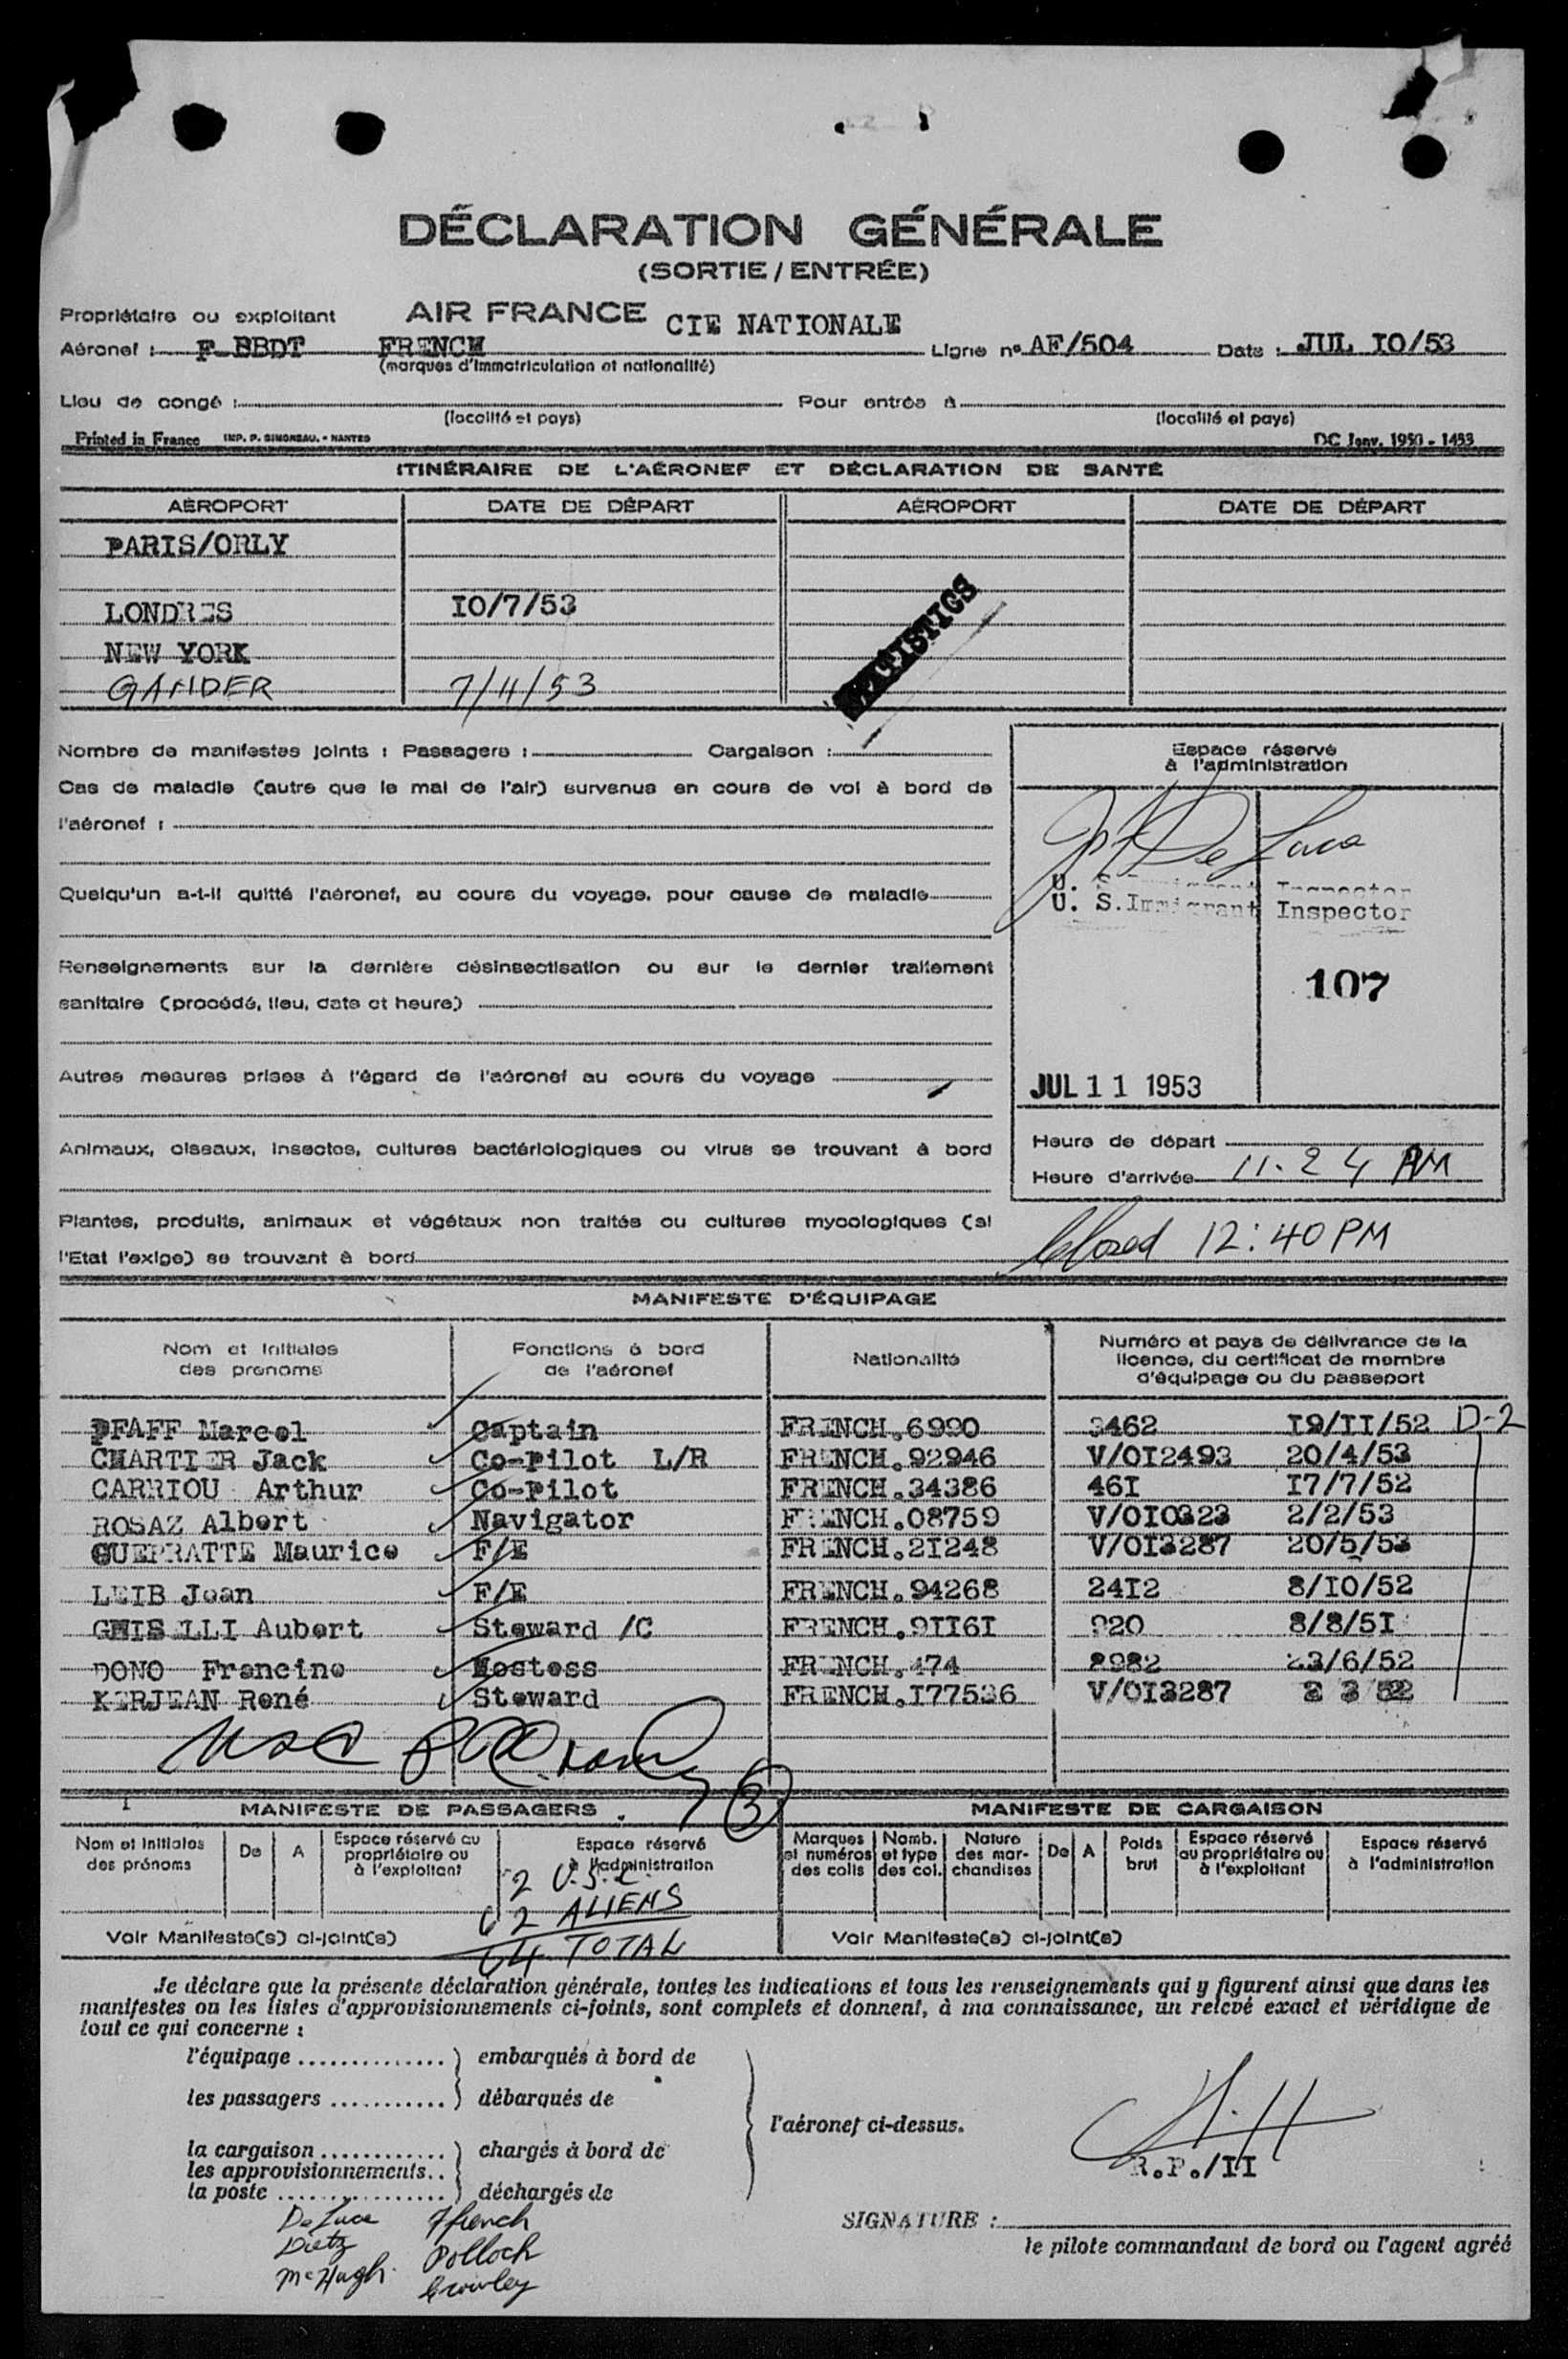 DÉCLARATION GÉNÉRALE
(SORTIE/ENTRÉE)
Propriétaire ou exploitant AIR FRANCE CIE NATIONALE
Aéronef : F-BBDT FRENCH Ligne nº AF/504 Date : JUL IO/53
(marques d'immatriculation et nationalité)
Lieu de congé : Pour entrée à
(localité et pays) (localité et pays)
Printed in France IMP. P. SIMONEAU. - NANTES DC Janv. 1950 - 1453
ITINÉRAIRE DE L'AÉRONEF ET DÉCLARATION DE SANTÉ
AÉROPORT DATE DE DÉPART AÉROPORT DATE DE DÉPART
PARIS/ORLY
LONDRES IO/7/53
NEW YORK
GANDER 7/11/53
STATISTICS
Nombre de manifestes joints : Passagers : Cargaison :
Cas de maladie (autre que le mal de l'air) survenus en cours de vol à bord de
l'aéronef :
Quelqu'un a-t-il quitté l'aéronef, au cours du voyage, pour cause de maladie
Renseignements sur la dernière désinsectisation ou sur le dernier traitement
sanitaire (procédé, lieu, date et heure)
Autres mesures prises à l'égard de l'aéronef au cours du voyage
Animaux, oiseaux, insectes, cultures bactériologiques ou virus se trouvant à bord
Plantes, produits, animaux et végétaux non traités ou cultures mycologiques (si
l'Etat l'exige) se trouvant à bord
Espace réservé
à l'administration
De Luca
U. S. Immigrant Inspector
U. S. Immigrant Inspector
107
JUL 11 1953
Heure de départ
Heure d'arrivée 11.24 AM
Closed 12:40 PM
MANIFESTE D'ÉQUIPAGE
Nom et Initiales des prenoms
Fonctions à bord de l'aéronef
Nationalité
Numéro et pays de délivrance de la licence, du certificat de membre d'équipage ou du passeport
PFAFF Marcel Captain FRENCH.6990 3462 I9/II/52 D-2
CHARTIER Jack Co-Pilot L/R FRENCH.92946 V/OI2493 20/4/53
CARRIOU Arthur Co-Pilot FRENCH.34386 46I I7/7/52
ROSAZ Albert Navigator FRENCH.08759 V/OI0323 2/2/53
GUEPRATTE Maurice F/E FRENCH.2I248 V/OI3287 20/5/53
LEIB Jean F/E FRENCH.94268 24I2 8/IO/52
GHISELLI Aubert Steward /C FRENCH.9II6I 920 8/8/5I
DONO Francine Hostess FRENCH.474 8982 23/6/52
KERJEAN René Steward FRENCH.I77536 V/OI3287 2 3 52
3
MANIFESTE DE PASSAGERS MANIFESTE DE CARGAISON
Nom et Initiales des prénoms
De
A
Espace réservé au propriétaire ou à l'exploitant
Espace réservé à l'administration
Marques et numéros des colis
Nomb. et type des col.
Nature des marchandises
De
A
Poids brut
Espace réservé au propriétaire ou à l'exploitant
Espace réservé à l'administration
2 U.S.C.
62 ALIENS
64 TOTAL
Voir Manifeste(s) ci-joint(s) Voir Manifeste(s) ci-joint(s)
Je déclare que la présente déclaration générale, toutes les indications et tous les renseignements qui y figurent ainsi que dans les
manifestes ou les listes d'approvisionnements ci-joints, sont complets et donnent, à ma connaissance, un relevé exact et véridique de
tout ce qui concerne :
l'équipage .............. ) embarqués à bord de
les passagers ........... ) débarqués de
l'aéronef ci-dessus.
la cargaison ............ ) chargés à bord de
les approvisionnements..
la poste ................ ) déchargés de
R.P./II
De Luca Ffrench
Dietz Polloch
McHugh Crowley
SIGNATURE :
le pilote commandant de bord ou l'agent agréé